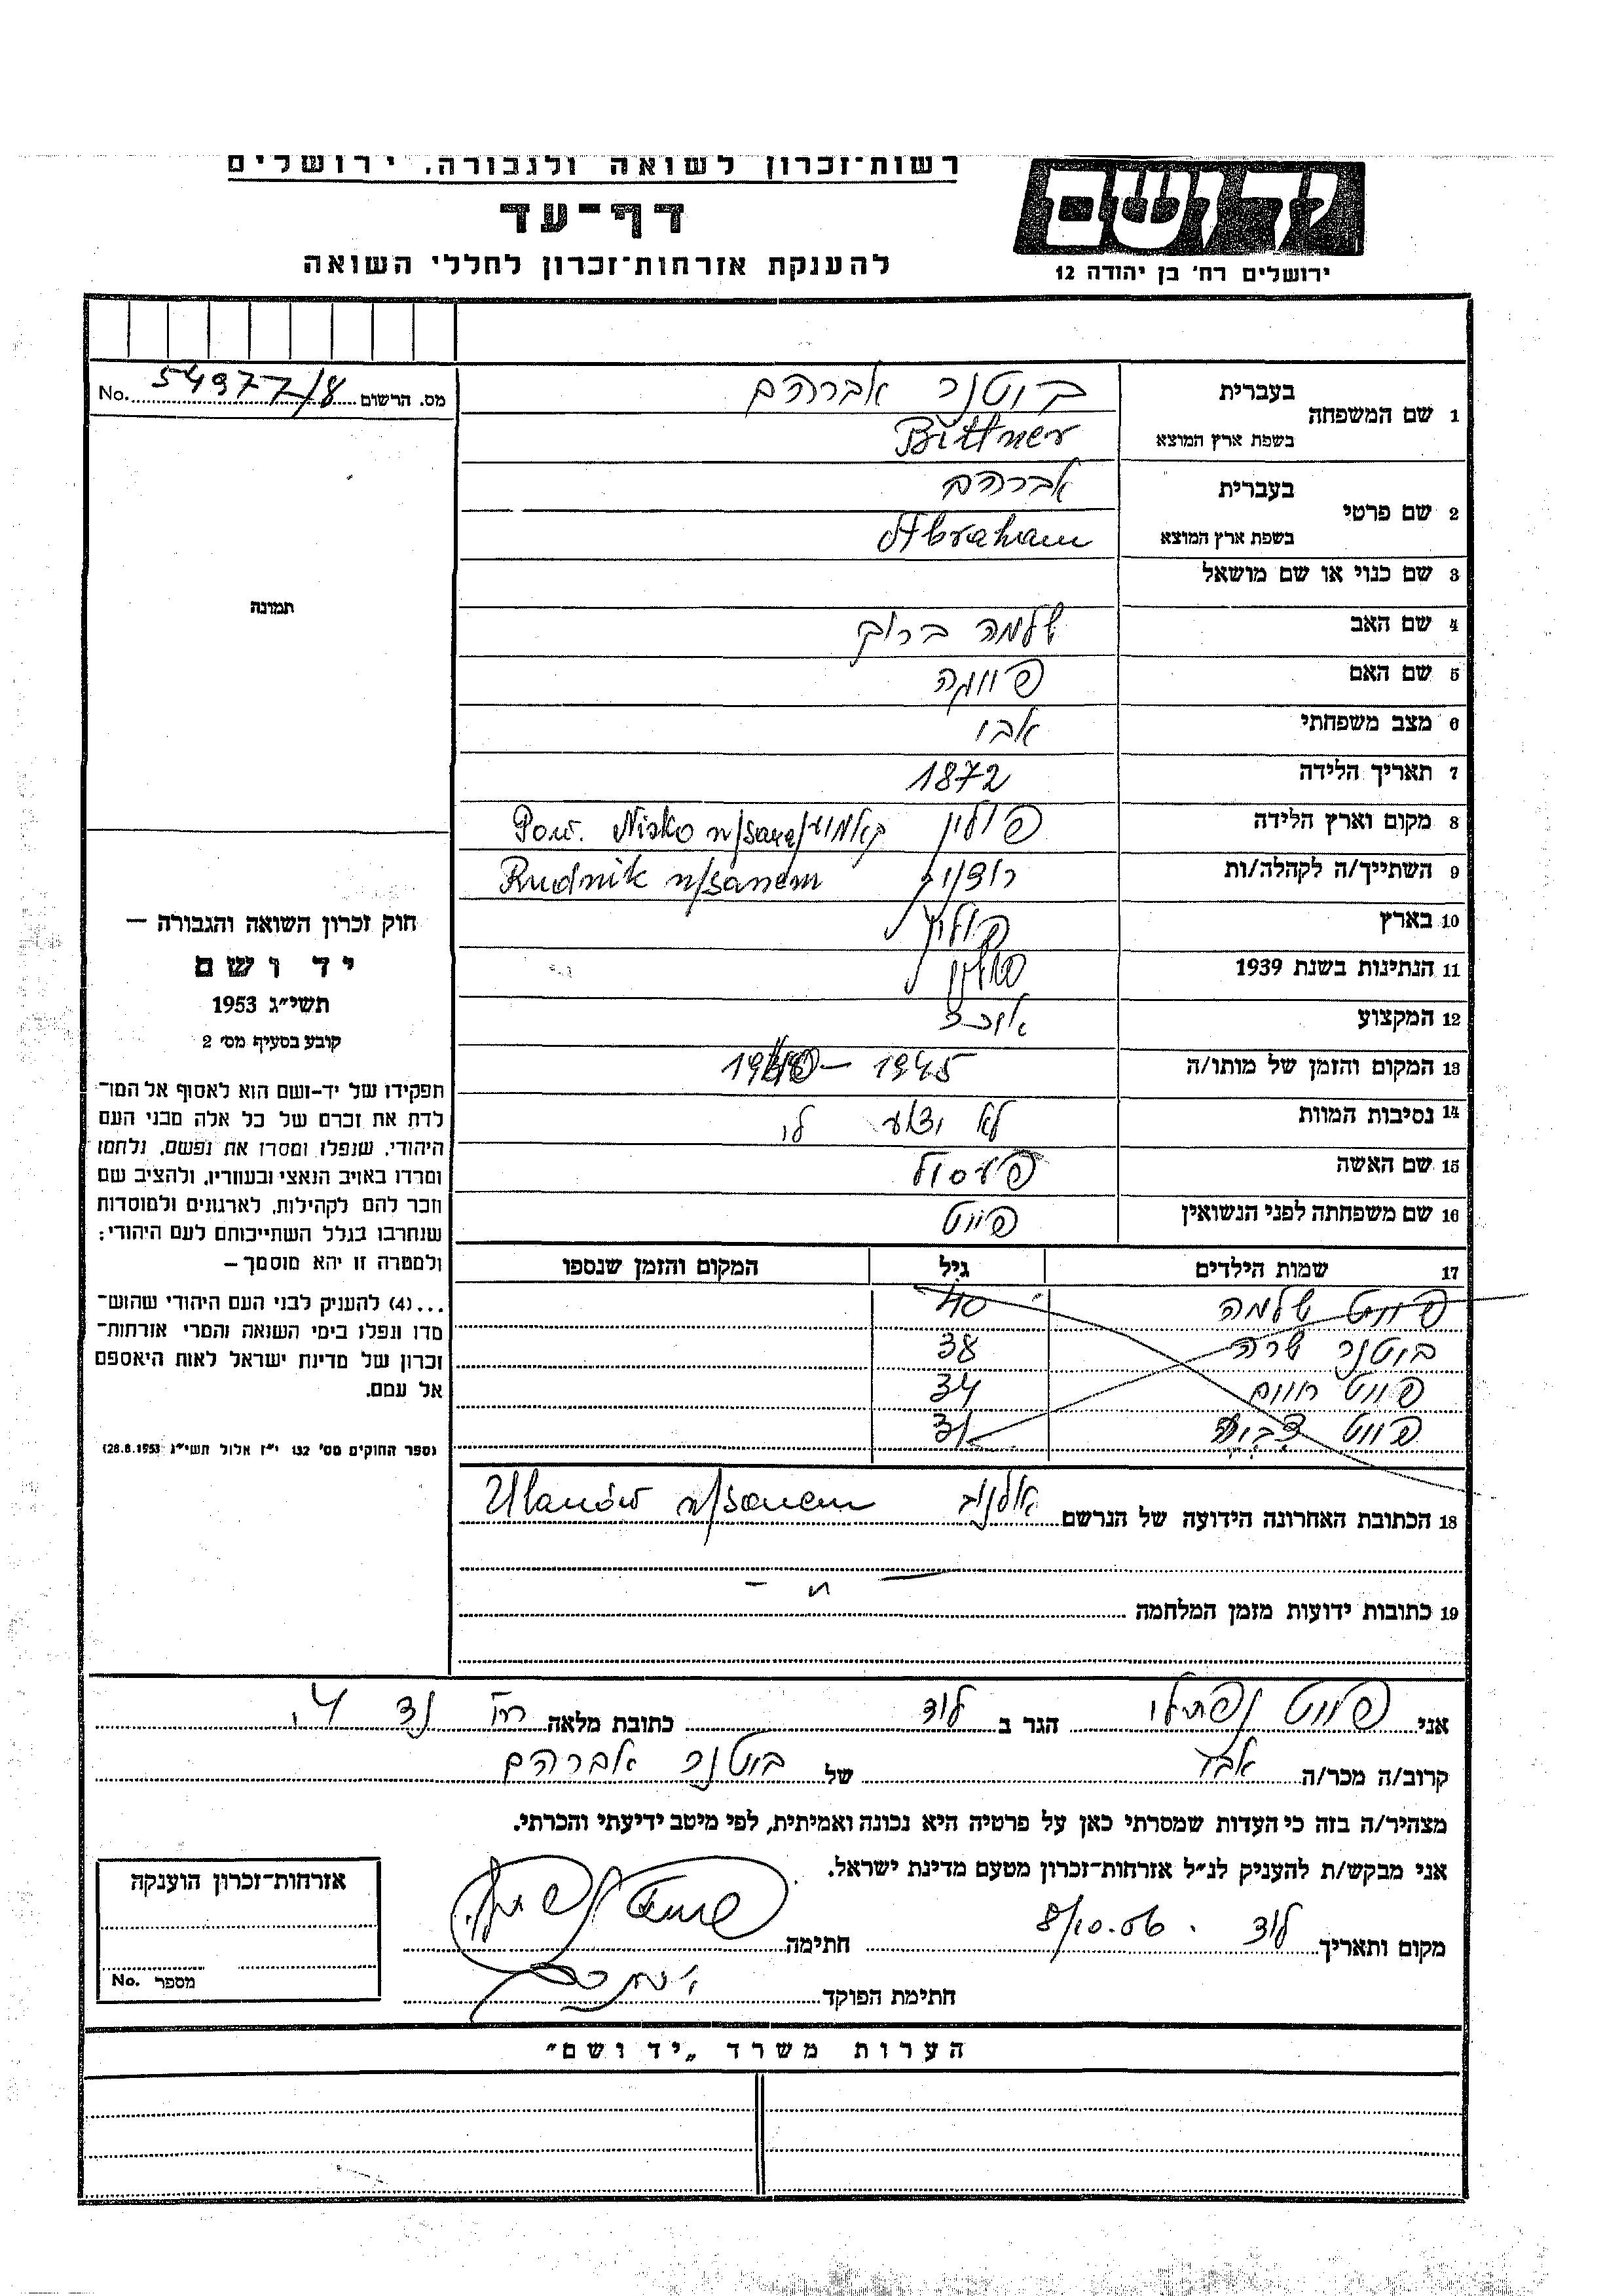 רשות־זכרון לשואה ולגבורה, ירושלים
יד ושם
דף־עד
ירושלים רח' בן יהודה 12
להענקת אזרחות־זכרון לחללי השואה
מס. הרשום 54977/8 No.
1 שם המשפחה בעברית ביטנר אברהם
בשפת ארץ המוצא Bittner
2 שם פרטי בעברית אברהם
בשפת ארץ המוצא Abraham
3 שם כנוי או שם מושאל
תמונה
4 שם האב שלמה ברוך
5 שם האם
6 מצב משפחתי
7 תאריך הלידה 1872
8 מקום וארץ הלידה פולין Pow. Nisko n/
9 השתייך/ה לקהלה/ות רודניק Rudnik n/sanem
10 בארץ פולין
11 הנתינות בשנת 1939 פולין
12 המקצוע
13 המקום והזמן של מותו/ה 1945 –
14 נסיבות המוות לא ידוע לי
15 שם האשה
16 שם משפחתה לפני הנשואין
17 שמות הילדים גיל המקום והזמן שנספו
שלמה 40
ביטנר שרה 38
חיים 34
31
18 הכתובת האחרונה הידועה של הנרשם Ulanów n/sanem
– " –
19 כתובות ידועות מזמן המלחמה
חוק זכרון השואה והגבורה —
יד ושם
תשי״ג 1953
קובע בסעיף מס׳ 2
תפקידו של יד־ושם הוא לאסוף אל המו־
לדת את זכרם של כל אלה מבני העם
היהודי, שנפלו ומסרו את נפשם, נלחמו
ומרדו באויב הנאצי ובעוזריו, ולהציב שם
וזכר להם לקהילות, לארגונים ולמוסדות
שנחרבו בגלל השתייכותם לעם היהודי;
ולמטרה זו יהא מוסמך —
...(4) להענין לבני העם היהודי שהוש־
מדו ונפלו בימי השואה והמרי אזרחות־
זכרון של מדינת ישראל לאות היאספם
אל עמם.
(ספר החוקים מס׳ 132 י״ז אלול תשי״ג 28.8.1953)
אני נפתלי הגר ב לוד כתובת מלאה 4
קרוב/ה מכר/ה של ביטנר אברהם
מצהיר/ה בזה כי העדות שמסרתי כאן על פרטיה היא נכונה ואמיתית, לפי מיטב ידיעתי והכרתי.
אני מבקש/ת להעניק לנ״ל אזרחות־זכרון מטעם מדינת ישראל.
מקום ותאריך לוד 8/10.56 חתימה
חתימת הפוקד
אזרחות־זכרון הוענקה
מספר No.
הערות משרד „יד ושם״